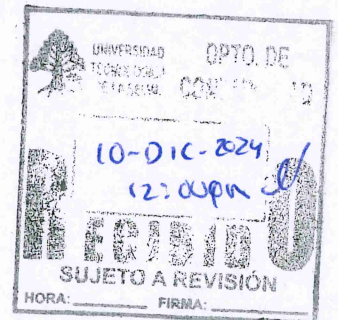 UNIVERSIDAD
TECNOLÓGICA
DE LA SELVA
DPTO. DE
10-DIC-2024
12:00pm
RECIBIDO
SUJETO A REVISIÓN
HORA: FIRMA: